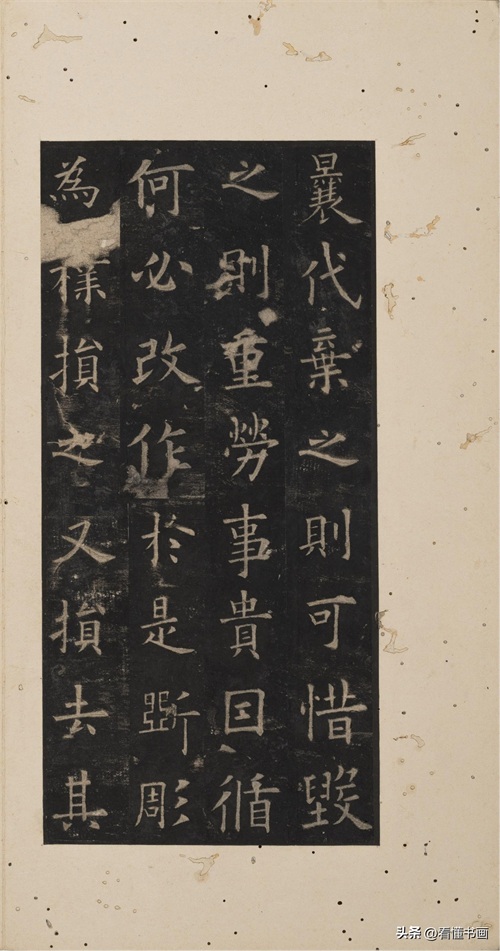 曩代棄之則可惜毀
之則重勞事貴因循
何必改作於是斲彫
為樸損之又損去其
头条 @看懂书画